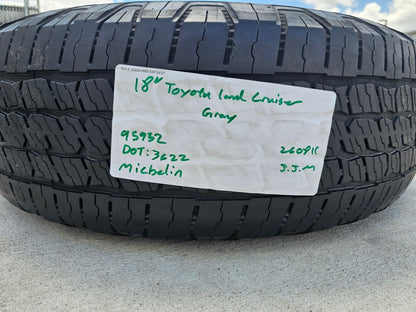 18" Toyota Land Cruiser
Gray
95932
DOT: 3622
Michelin
J.J.M